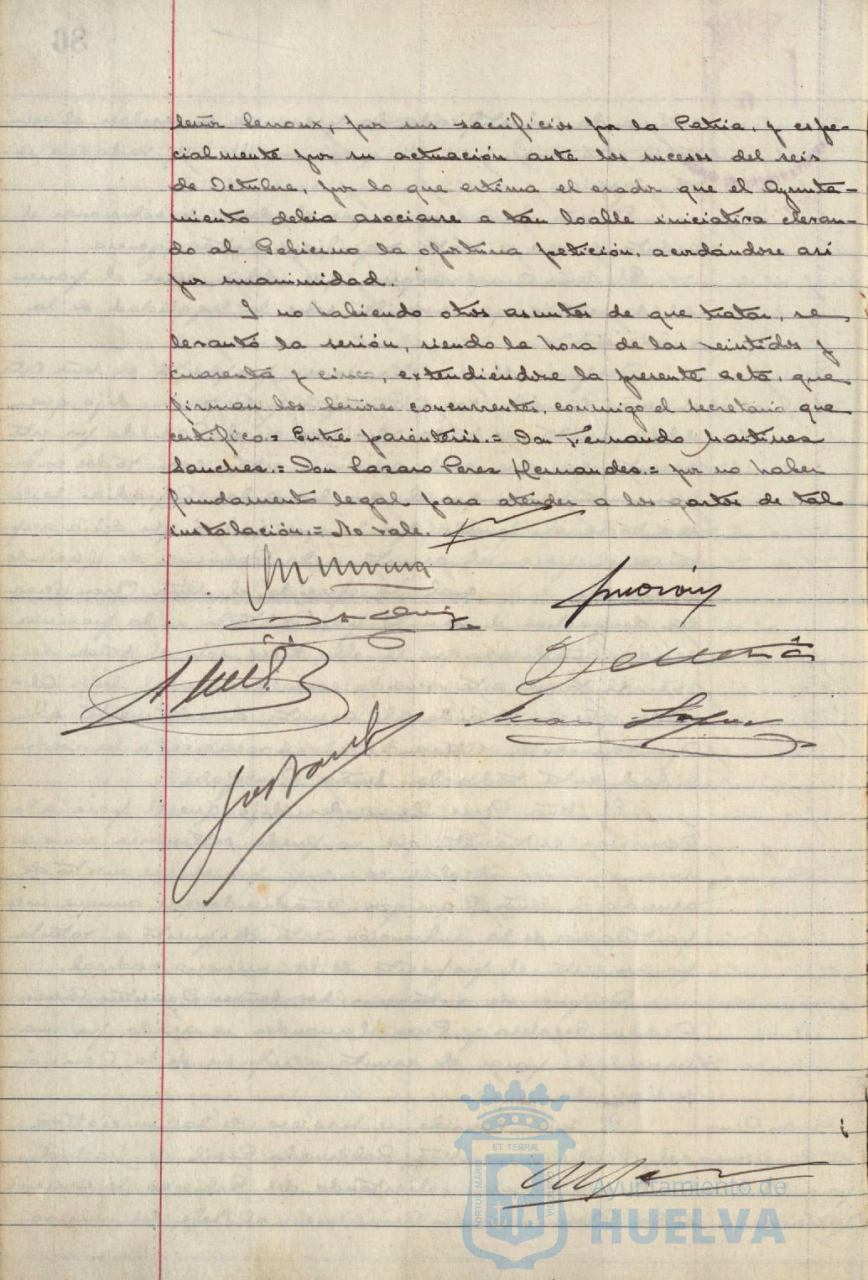 señor Lerroux, por sus sacrificios por la Patria, y espe-
cialmente por su actuación ante los sucesos del seis
de Octubre, por lo que estima el orador que el Ayunta-
miento debia asociarse a tan loable iniciativa elevan-
do al Gobierno la oportuna petición, acordándose así
por unanimidad.
Y no habiendo otros asuntos de que tratar, se
levantó la sesión, siendo la hora de las veintidos y
cuarenta y cinco, extendiéndose la presente acta, que
firman los señores concurrentes, conmigo el secretario que
certifico.= Entre parentesis.= Don Fernando Martinez
Sanchez.= Don Lazaro Perez Hernandez.= por no haber
fundamento legal para atender a los gastos de tal
instalación.= No vale.
ET TERRÆ
PORTUS MARIS
CUSTODIA
Ayuntamiento de
HUELVA